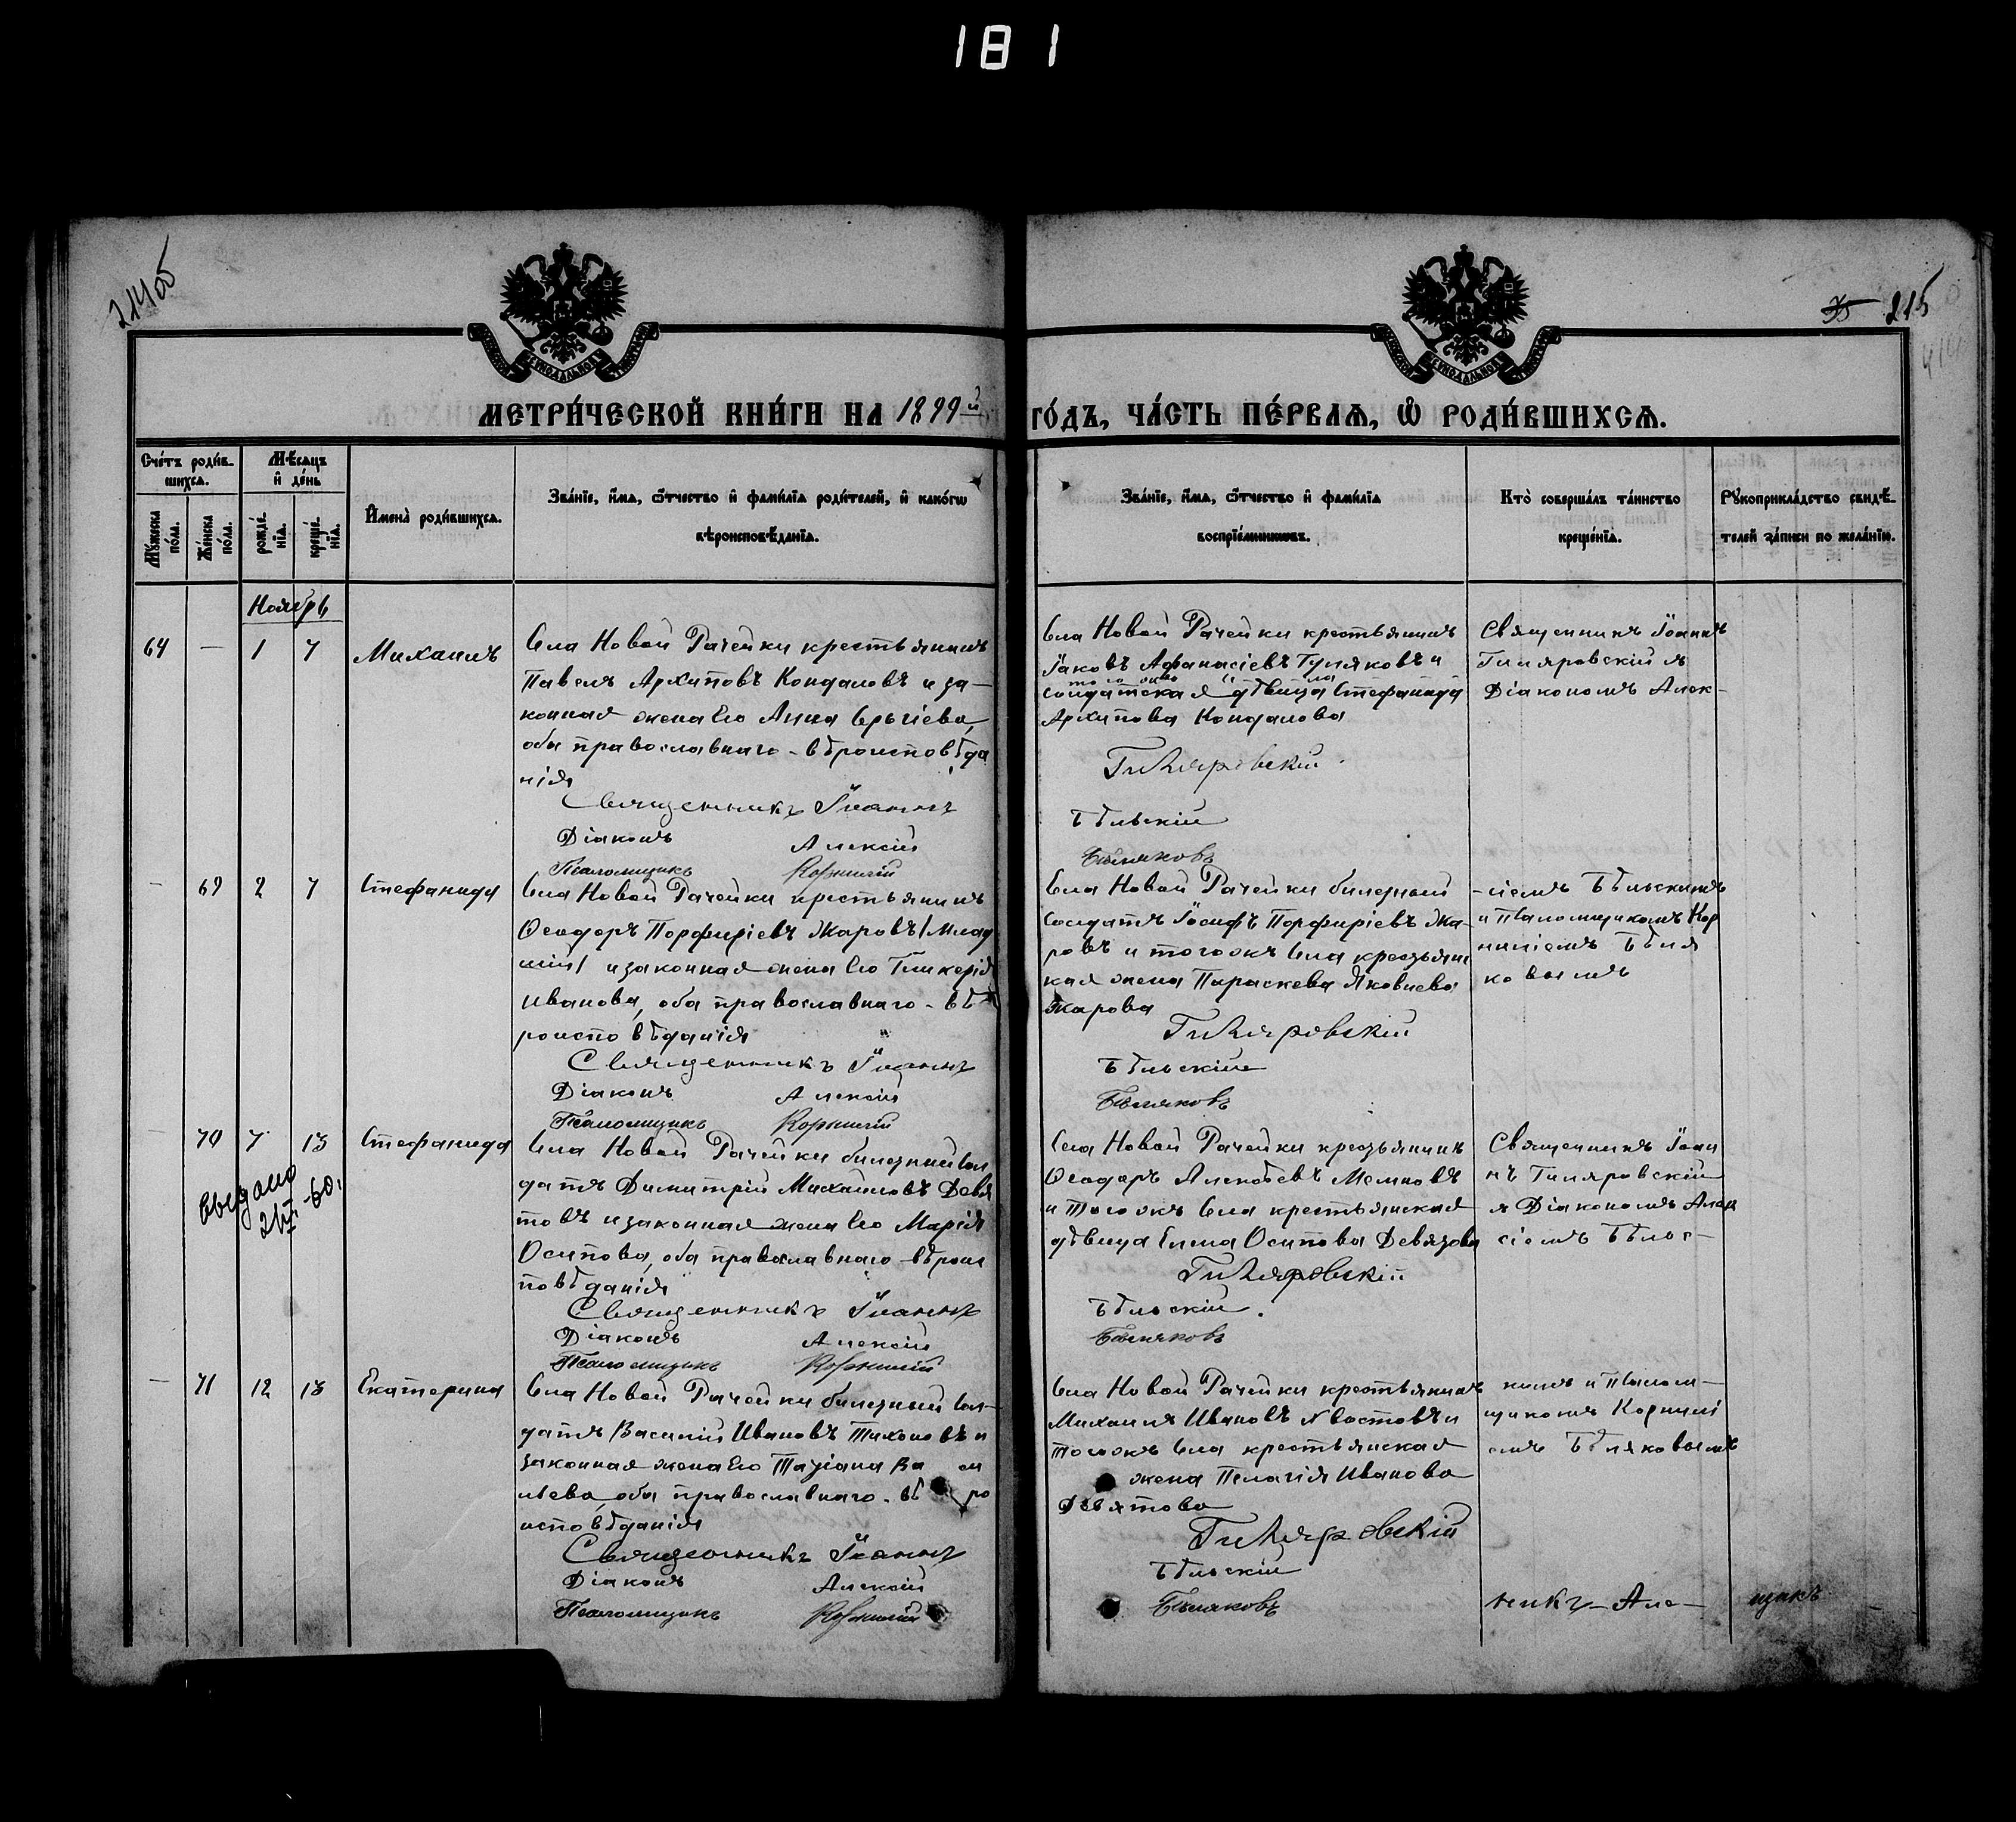 181
214об
35 215
414
МЕТРИ́ЧЕСКОЙ КНИ́ГИ НА 1899 й
ГО́ДЪ, ЧА́СТЬ ПЕ́РВАѦ, Ѽ РОДИ́ВШИХСѦ.
Сче́тъ роди́в-
шихсѧ.
Мѣ́сѧцъ
и҆ де́нь
Мꙋ́жеска
по́ла.
Же́нска
по́ла.
рожде́-
нїѧ.
креще́-
нїѧ.
И҆мена̀ роди́вшихсѧ.
Зва́нїе, и҆́мѧ, ѻ҆́тчество и҆ фами́лїѧ роди́телей, и҆ како́гѡ
вѣроисповѣ́данїѧ.
Зва́нїе, и҆́мѧ, ѻ҆́тчество и҆ фами́лїѧ
воспрїе́мниковъ.
Кто̀ соверша́лъ та́инство
креще́нїѧ.
Рꙋкоприкла́дство свидѣ́-
телей за́писи по жела́нїю.
Ноябрь
64 — 1 7 Михаилъ
Села Новой Рачейки крестьянинъ
Павелъ Архиповъ Кондаловъ и за-
конная жена его Анна Сергіева,
оба православнаго-вѣроисповѣда
нія
Священникъ Іоаннъ
Діаконъ Алексій
Псаломщикъ Корнилій
Села Новой Рачейки крестьянинъ
Іаковъ Афанасіевъ Гуляковъ и
того же села
солдатская дѣвица Стефанида
Архипова Кондалова
Гиляровскій
Бѣльскій
Бѣляковъ
Священникъ Іоаннъ
Гиляровскій съ
Діакономъ Алек-
— 69 2 7 Стефанида
Села Новой Рачейки крестьянинъ
Ѳеодоръ Порфиріевъ Жаровъ /млад
шій/ и законная жена его Гликерія
Иванова, оба православнаго-вѣ
роисповѣданія
Священникъ Іоаннъ
Діаконъ Алексій
Псаломщикъ Корнилій
Села Новой Рачейки билетный
солдатъ Іосифъ Порфиріевъ Жа-
ровъ и тогожъ села крестьянс
кая жена Параскева Яковлева
Жарова
Гиляровскій
Бѣльскій
Бѣляковъ
-сіемъ Бѣльскимъ
и псаломщикомъ Кор
ниліемъ Бѣля
ковымъ
— 70 7 13 Стефанида
Выдано
-60
Села Новой Рачейки билетный сол
датъ Димитрій Михаиловъ Девя
товъ и законная жена его Марія
Осипова, оба православнаго-вѣроис
повѣданія
Священникъ Іоаннъ
Діаконъ Алексій
Псаломщикъ Корнилій
Села Новой Рачейки крестьянинъ
Ѳеодоръ Алексѣевъ
и тогожъ села крестьянская
дѣвица Елена Осипова
Гиляровскій
Бѣльскій.
Бѣляковъ
Священникъ Іоан
нъ Гиляровскій
съ Діакономъ Алек
сіемъ Бѣльс-
— 71 12 13 Екатерина
Села Новой Рачейки билетный сол-
датъ Василій Ивановъ Тихоновъ и
законная жена его Татіана Ва си
льева, оба православнаго-вѣ ро
исповѣданія
Священникъ Іоаннъ
Діаконъ Алексій
Псаломщикъ Корнилій
Села Новой Рачейки крестьянинъ
Михаилъ Ивановъ Хвостовъ и
тогожъ села крестьянская
жена Пелагія Иванова
Девятова
Гиляровскій
Бѣльскій
Бѣляковъ
кимъ и псалом-
щикомъ Корнилі
емъ Бѣляковымъ
никъ — Але — щикъ